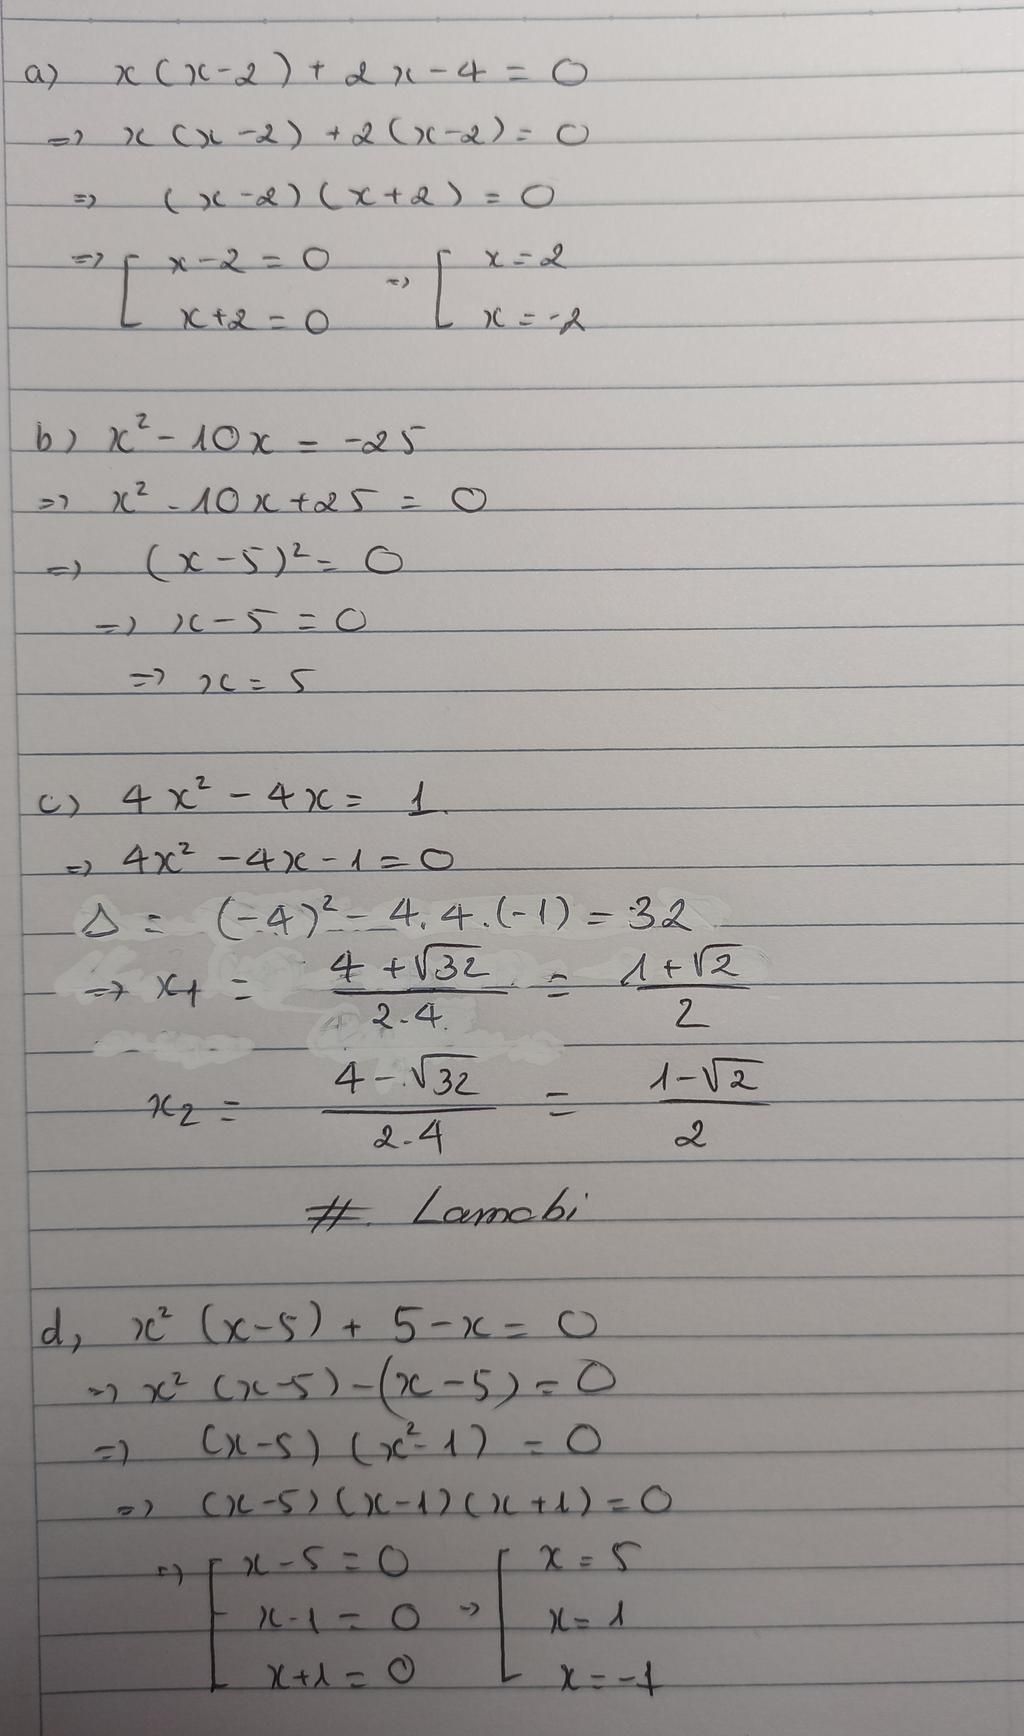 a) x(x-2)+2x-4=0
=> x(x-2)+2(x-2)=0
=> (x-2)(x+2)=0
=> [ x-2=0 => [ x=2
x+2=0 x=-2
b) x²-10x=-25
=> x²-10x+25=0
=> (x-5)²=0
=> x-5=0
=> x=5
c) 4x²-4x=1
=> 4x²-4x-1=0
Δ = (-4)²-4.4.(-1)=32
=> x₁ = (4+√32)/(2.4) = (1+√2)/2
x₂ = (4-√32)/(2.4) = (1-√2)/2
#. Lamabi
d, x²(x-5)+5-x=0
=> x²(x-5)-(x-5)=0
=> (x-5)(x²-1)=0
=> (x-5)(x-1)(x+1)=0
=> [ x-5=0 => [ x=5
x-1=0 x=1
x+1=0 x=-1